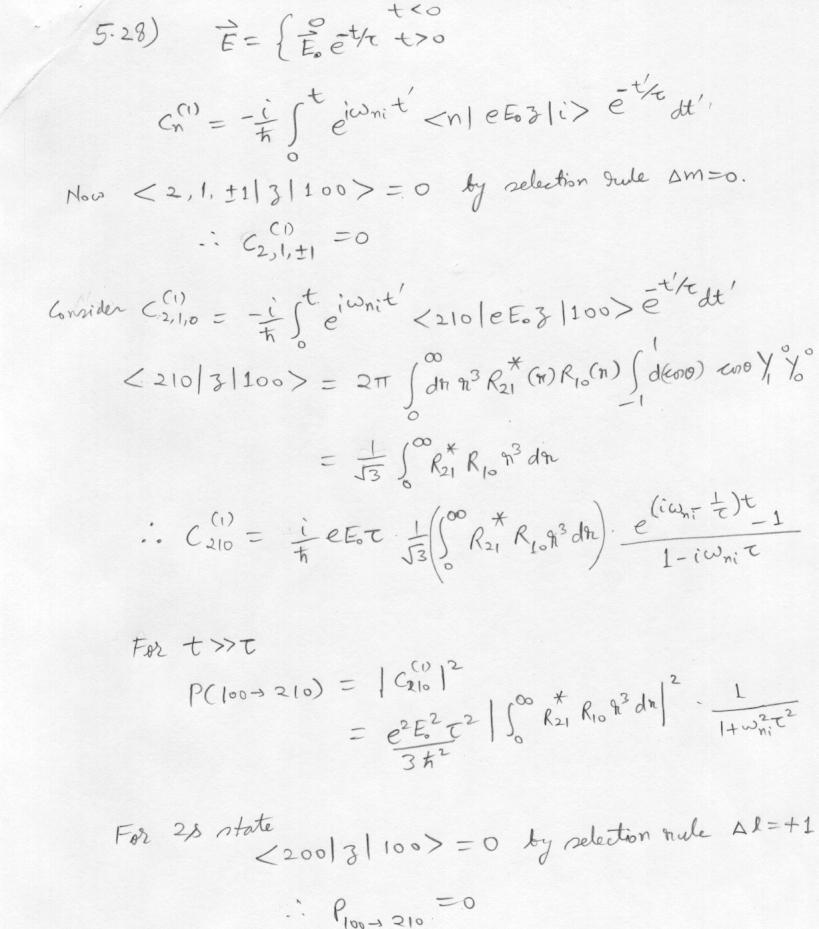 5.28) $\vec{E} = \{ \begin{matrix} 0 & t<0 \\ \vec{E}_0 e^{-t/\tau} & t>0 \end{matrix}$
$C_n^{(1)} = -\frac{i}{\hbar} \int_0^t e^{i\omega_{ni}t'} <n|eE_0z|i> e^{-t'/\tau} dt'.$
Now $<2,1,\pm1|z|100> = 0$ by selection rule $\Delta m=0.$
$\therefore C_{2,1,\pm1}^{(1)} = 0$
Consider $C_{2,1,0}^{(1)} = -\frac{i}{\hbar} \int_0^t e^{i\omega_{ni}t'} <210|eE_0z|100> e^{-t'/\tau} dt'$
$<210|z|100> = 2\pi \int_0^\infty dr r^3 R_{21}^*(r) R_{10}(r) \int_{-1}^1 d(\cos\theta) \cos\theta Y_1^0 Y_0^0$
$= \frac{1}{\sqrt{3}} \int_0^\infty R_{21}^* R_{10} r^3 dr$
$\therefore C_{210}^{(1)} = \frac{i}{\hbar} eE_0\tau \cdot \frac{1}{\sqrt{3}} \left(\int_0^\infty R_{21}^* R_{10} r^3 dr\right) \cdot \frac{e^{(i\omega_{ni} - \frac{1}{\tau})t} - 1}{1 - i\omega_{ni}\tau}$
For $t>>\tau$
$P(100\to210) = |C_{210}^{(1)}|^2$
$= \frac{e^2E_0^2\tau^2}{3\hbar^2} \left|\int_0^\infty R_{21}^* R_{10} r^3 dr\right|^2 \cdot \frac{1}{1+\omega_{ni}^2\tau^2}$
For 2s state
$<200|z|100> = 0$ by selection rule $\Delta l=+1$
$\therefore P_{100\to210} = 0$